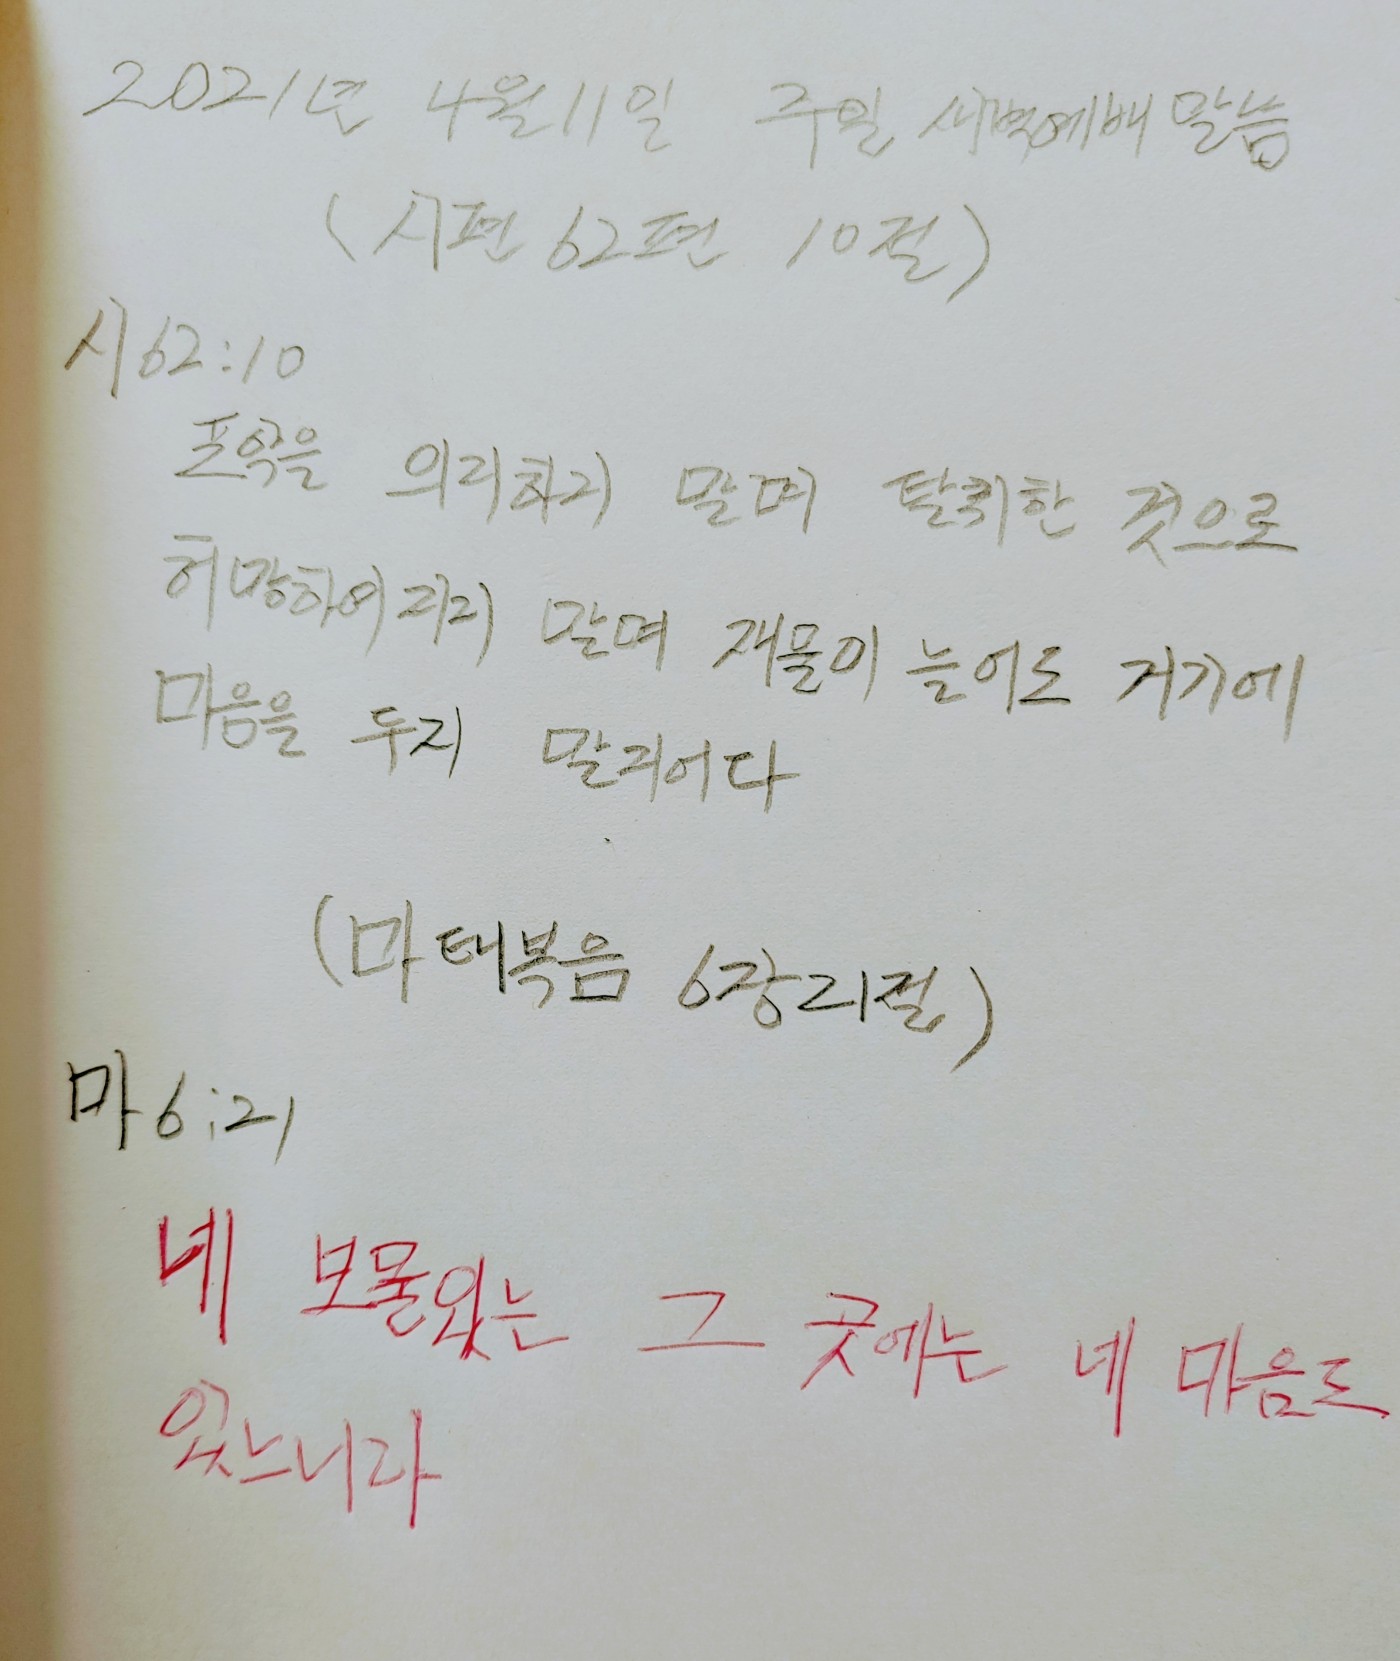 2021년 4월 11일 주일 새벽예배 말씀
(시편 62편 10절)
시 62:10
포악을 의지하지 말며 탈취한 것으로
허망하여지지 말며 재물이 늘어도 거기에
마음을 두지 말지어다
(마태복음 6장 21절)
마 6:21
네 보물있는 그 곳에는 네 마음도
있느니라